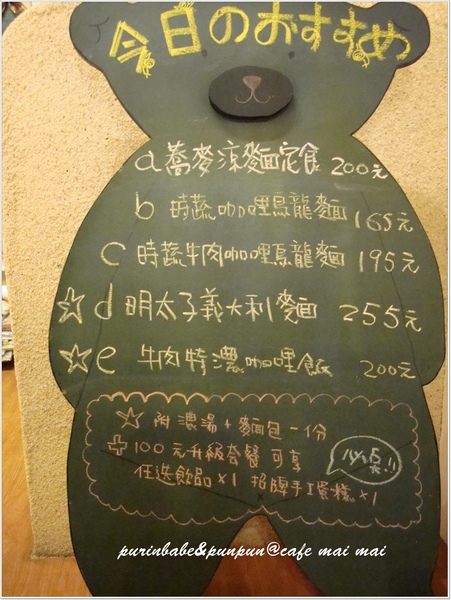 今日のおすすめ
a 蕎麥涼麵定食 200元
b 時蔬咖哩烏龍麵 165元
c 時蔬牛肉咖哩烏龍麵 195元
☆ d 明太子義大利麵 255元
☆ e 牛肉特濃咖哩飯 200元
☆ 附濃湯+麵包一份
✚ 100元升級套餐可享
任選飲品×1 招牌手工蛋糕×1
purinbabe&punpun@cafe mai mai